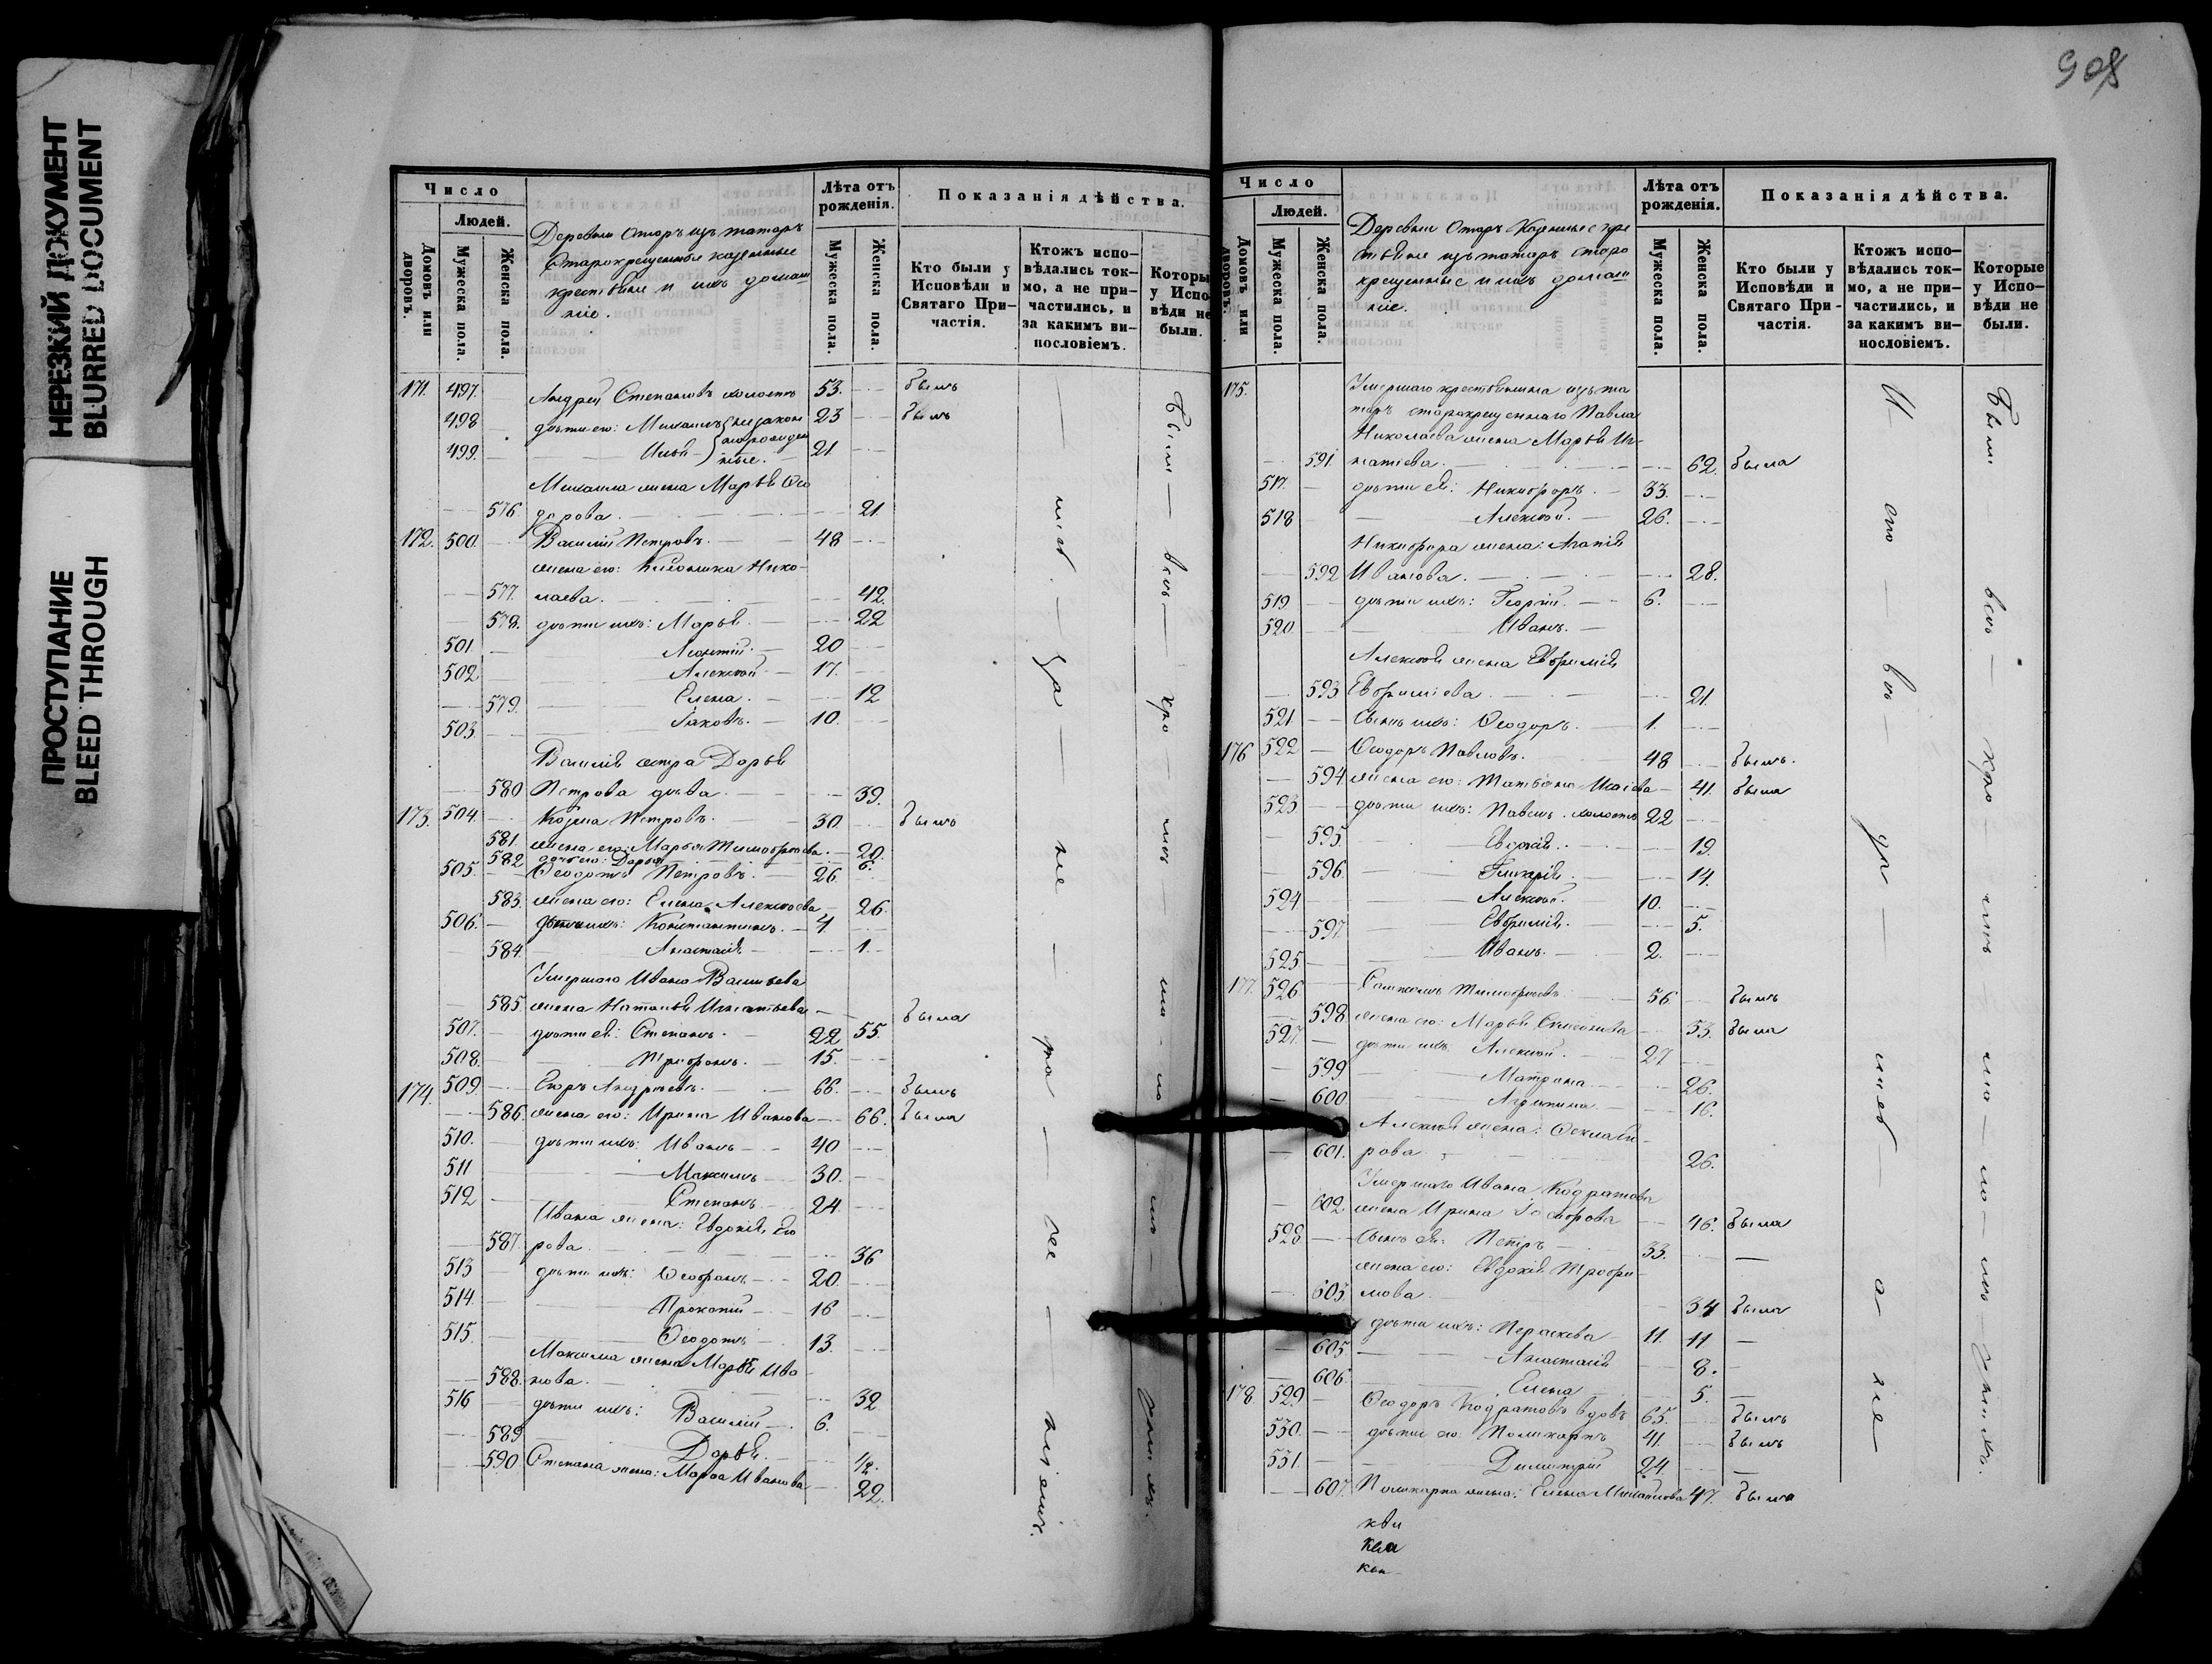 НЕРЕЗКИЙ ДОКУМЕНТ
BLURRED DOCUMENT
ПРОСТУПАНИЕ
BLEED THROUGH
908
Число
Людей.
Домовъ или дворовъ.
Мужеска пола.
Женска пола.
Деревни Отаръ изъ татаръ
Старокрещенные казенные
крестьяне и ихъ домаш
ніе.
Лѣта отъ рожденія.
Мужеска пола.
Женска пола.
Показанія дѣйства.
Кто были у Исповѣди и Святаго При-
частія.
Ктожъ испо-
вѣдались ток-
мо, а не при-
частились, и
за какимъ ви-
нословіемъ.
Которы
у Испо
вѣди не
были.
171. 497. Андрей Степановъ холостъ 53. былъ
498 дѣти его: Михаилъ незакон 23 былъ
499. Илья норожден 21
ные.
Михаила жена Марья Ѳео
576 дорова. 21.
172. 500. Василий Петровъ. 48
жена его: Нико-
577. лаева. 42.
578. дѣти ихъ: Марья 22
501. Леонтій. 20
502 Алексей 17.
579. Елена. 12
503. Іаковъ. 10.
Василія сестра Дарья
580 Петрова дѣва. 39.
173. 504. Козма Петровъ. 30. былъ
581. жена его: Марья Тимофеева. 20.
582 дочь его: Дарья 6.
505. Ѳеодотъ Петровъ. 26.
583. жена его: Елена Алексеева 26.
506. дѣти ихъ: Константинъ. 4
584. Анастасія 1.
Умершаго Ивана Васильева
585. жена Наталья Игнатьева 55. была
507. дѣти ея: Степанъ. 22
508. Трифонъ. 15.
174. 509 Егоръ Андреевъ. 66. былъ
586. жена его: Ирина Иванова 66. была
510. дѣти ихъ: Иванъ 40
511 Максимъ 30.
512 Степанъ 24.
Ивана жена: Евдокія Его
587. рова. 36
513 дѣти ихъ: Ѳеофанъ 20.
514. Прокопій 16
515. Ѳеодотъ 13.
Максима жена Марья Ива
588. нова. 32
516 дѣти ихъ: Василій 6.
589 Дарья
590. Степана жена: Марѳа Иванова 22.
Число
Людей.
Домовъ или дворовъ.
Мужеска пола.
Женска пола.
Деревни Отаръ Казенные кре
стьяне изъ татаръ старо
крещенные и ихъ домаш
ніе.
Лѣта отъ рожденія.
Мужеска пола.
Женска пола.
Показанія дѣйства.
Кто были у
Исповѣди и
Святаго При-
частія.
Ктожъ испо-
вѣдались ток-
мо, а не при-
частились, и
за какимъ ви-
нословіемъ.
Которые
у Испо-
вѣди не
были.
175. Умершаго крестьянина изъ та
таръ старокрещеннаго Павла
Николаева жена Марья Иг-
591. натіева. 62. была
517. дѣти ея: Никифоръ. 33.
518 Алексей. 26.
Никифора жена: Агапія
592 Иванова. 28.
519 дѣти ихъ: Георгій. 6.
520. Иванъ.
Алексея жена Евфимія
593 Евфиміева. 21.
521. Сынъ ихъ: Ѳеодоръ. 1.
176 522 Ѳеодоръ Павловъ. 48 былъ.
594 жена его: Татьяна Исаіева 41. была
523. дѣти ихъ: Павелъ. холостъ 22
595. Евдокія. 19.
596. Гликерія. 14.
524 Алексей. 10.
597. Евфимія. 5.
525 Иванъ. 2.
177. 526. Тимофеевъ 56. былъ
598. жена его: Марья 53. была
527. дѣти ихъ Алексей. 27
599 Матрона. 26.
600. Агрипина 16.
Алексея жена:
601. рова. 26.
Умершаго Ивана Кодратова
602. жена Ирина 46. была
528. Сынъ ея: Петръ 33.
жена его: Евдокія Трофи-
603. мова 34 была
дѣти ихъ: Параскева 11. 11
605. Анастасія 8.
606. Елена 5.
178 529 Ѳеодоръ Кодратовъ вдовъ 65. былъ
530. дѣти его: Поликарпъ 41. былъ
531. Димитрій 24.
607. Поликарпа жена: Елена Михайлова 47. была